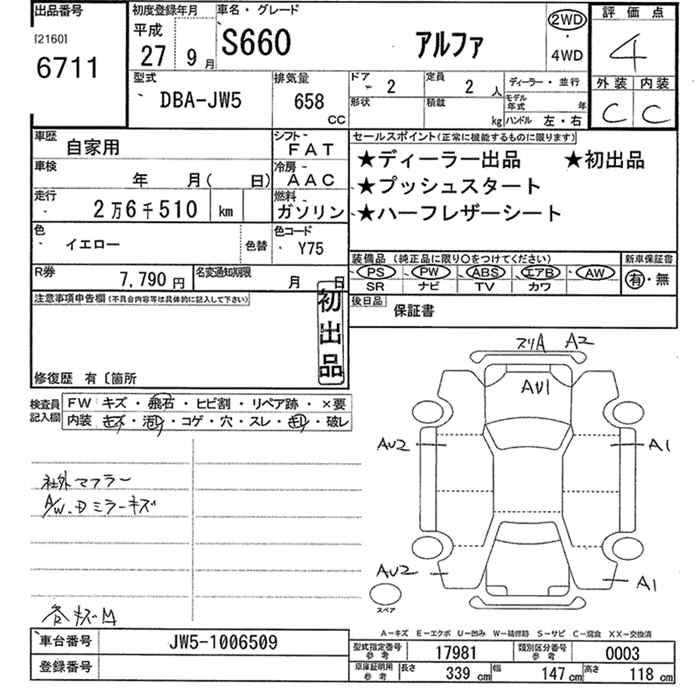 出品番号 初度登録年月 車名・グレード 評価点
[2160] 平成 2WD
6711 27 9月 S660 アルファ 4WD 4
型式 排気量 ドア 2 定員 2人 ディーラー・並行 外装 内装
DBA-JW5 658 CC 形状 積載 kg モデル年式 年 C C
ハンドル 左・右
車歴 自家用 シフト FAT セールスポイント(正常に機能するものに限ります)
車検 年 月( 日) 冷房 AAC ★ディーラー出品 ★初出品
走行 2万6千510 km 燃料 ガソリン ★プッシュスタート
★ハーフレザーシート
色 イエロー 色替 色コード Y75
装備品(純正品に限り○をつけてください) 新車保証書
R券 7,790円 名変通知期限 月 日 PS PW ABS エアB AW 有・無
SR ナビ TV カワ
注意事項申告欄(不具合内容等は具体的に記入して下さい) 初出品 後日品 保証書
修復歴 有〔箇所
スリA A2
AU1
検査員記入欄 FW キズ・飛石・ヒビ割・リペア跡・×要
内装 キズ・汚れ・コゲ・穴・スレ・切・破レ
AU2 A1
社外マフラー
A/W. Dミラーキズ
AU2 A1
スペア
A-キズ E-エクボ U-凹み W-補修跡 S-サビ C-腐食 XX-交換済
車台番号 JW5-1006509 型式指定番号 参考 17981 類別区分番号 参考 0003
登録番号 車庫証明用 参考 長さ 339 cm 幅 147 cm 高さ 118 cm